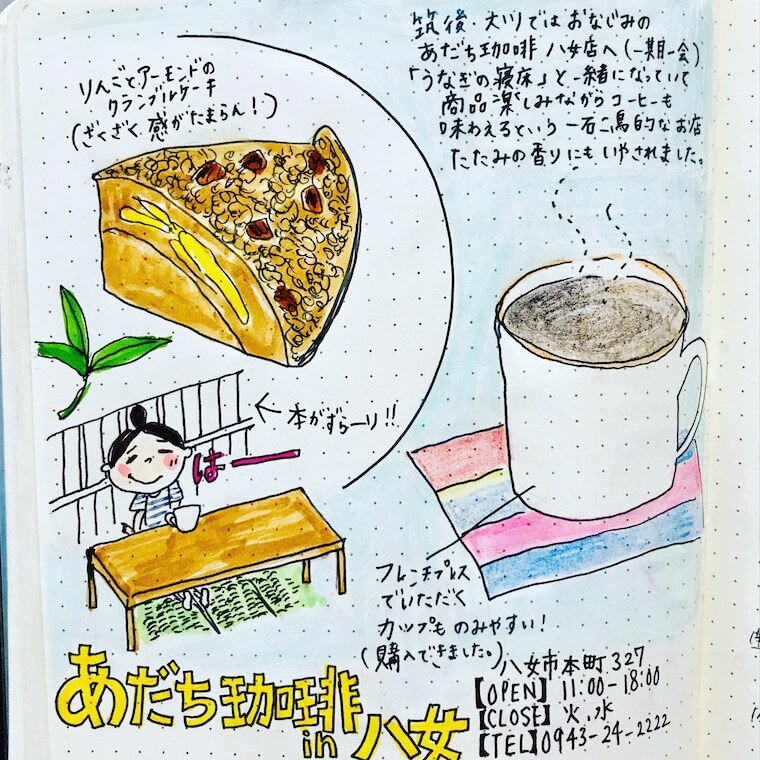 りんごとアーモンドの
クランブルケーキ
(ざくざく感がたまらん！)
筑後・大川ではおなじみの
あだち珈琲 八女店へ(一期一会)
「うなぎの寝床」と一緒になっていて
商品楽しみながらコーヒーも
味わえるという一石二鳥的なお店
たたみの香りにもいやされました。
←本がずらーり!!
はー
フレンチプレス
でいただく
カップものみやすい！
(購入できました。)
あだち珈琲
in 八女
八女市本町327
【OPEN】11:00-18:00
【CLOSE】火、水
【TEL】0943-24-2222